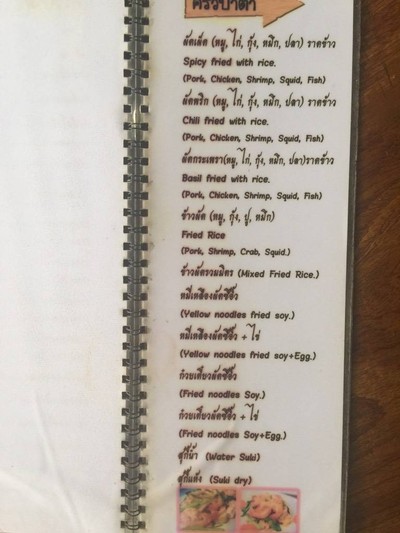 ครัวป้าต๋า
ผัดเผ็ด (หมู, ไก่, กุ้ง, หมึก, ปลา) ราดข้าว
Spicy fried with rice.
(Pork, Chicken, Shrimp, Squid, Fish)
ผัดพริก (หมู, ไก่, กุ้ง, หมึก, ปลา) ราดข้าว
Chili fried with rice.
(Pork, Chicken, Shrimp, Squid, Fish)
ผัดกระเพรา(หมู, ไก่, กุ้ง, หมึก, ปลา)ราดข้าว
Basil fried with rice.
(Pork, Chicken, Shrimp, Squid, Fish)
ข้าวผัด (หมู, กุ้ง, ปู, หมึก)
Fried Rice
(Pork, Shrimp, Crab, Squid.)
ข้าวผัดรวมมิตร (Mixed Fried Rice.)
หมี่เหลืองผัดซีอิ๊ว
(Yellow noodles fried soy.)
หมี่เหลืองผัดซีอิ๊ว + ไข่
(Yellow noodles fried soy+Egg.)
ก๋วยเตี๋ยวผัดซีอิ๊ว
(Fried noodles Soy.)
ก๋วยเตี๋ยวผัดซีอิ๊ว + ไข่
(Fried noodles Soy+Egg.)
สุกี้น้ำ (Water Suki)
สุกี้แห้ง (Suki dry)